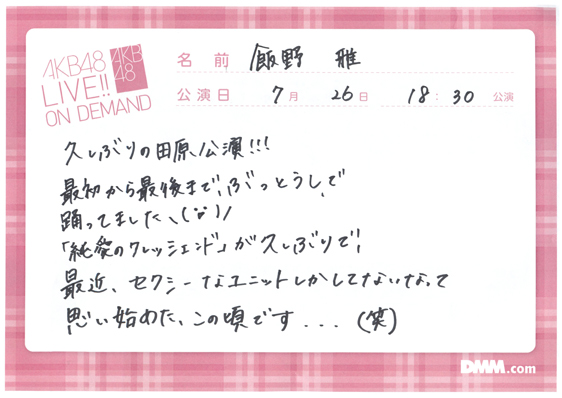 AKB48
LIVE!!
ON DEMAND
AKB
48
名前 飯野 雅
公演日 7月 26日 18:30 公演
久しぶりの田原公演!!!
最初から最後まで、ぶっとうしで
踊ってました＼(¨)/
「純愛のクレッシェンド」が久しぶりで、
最近、セクシーなユニットしかしてないなって
思い始めた、この頃です...(笑)
DMM.com